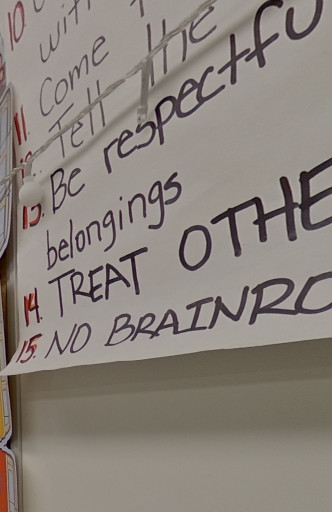 10.
with
11. Come
Tell the
13. Be respectfu
belongings
14. TREAT OTHE
15. NO BRAINRO